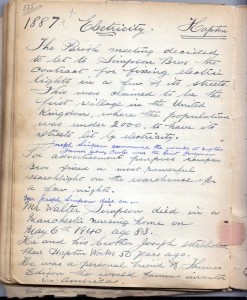 1887. Electricity. Hapton
The Parish meeting decided
to let to Simpson Bros. the
contract for fixing electric
lights in a few of its streets.
This was claimed to be the
first village in the United
Kingdom, where the population
was under 2000, to have its
streets lit by electricity.
Joseph Simpson
For advertisement purposes Simpson
Bros fixed a most powerful
searchlight on the warehouse for
a few nights.
Mr. Joseph Simpson died on
Mr Walter Simpson died in a
Manchester nursing home on
May 6th 1940, aged 83.
He and his brother Joseph established
their Hapton Works 50 years ago.
He was a personal friend of Thomas
Edison the world famous inventor
in America.